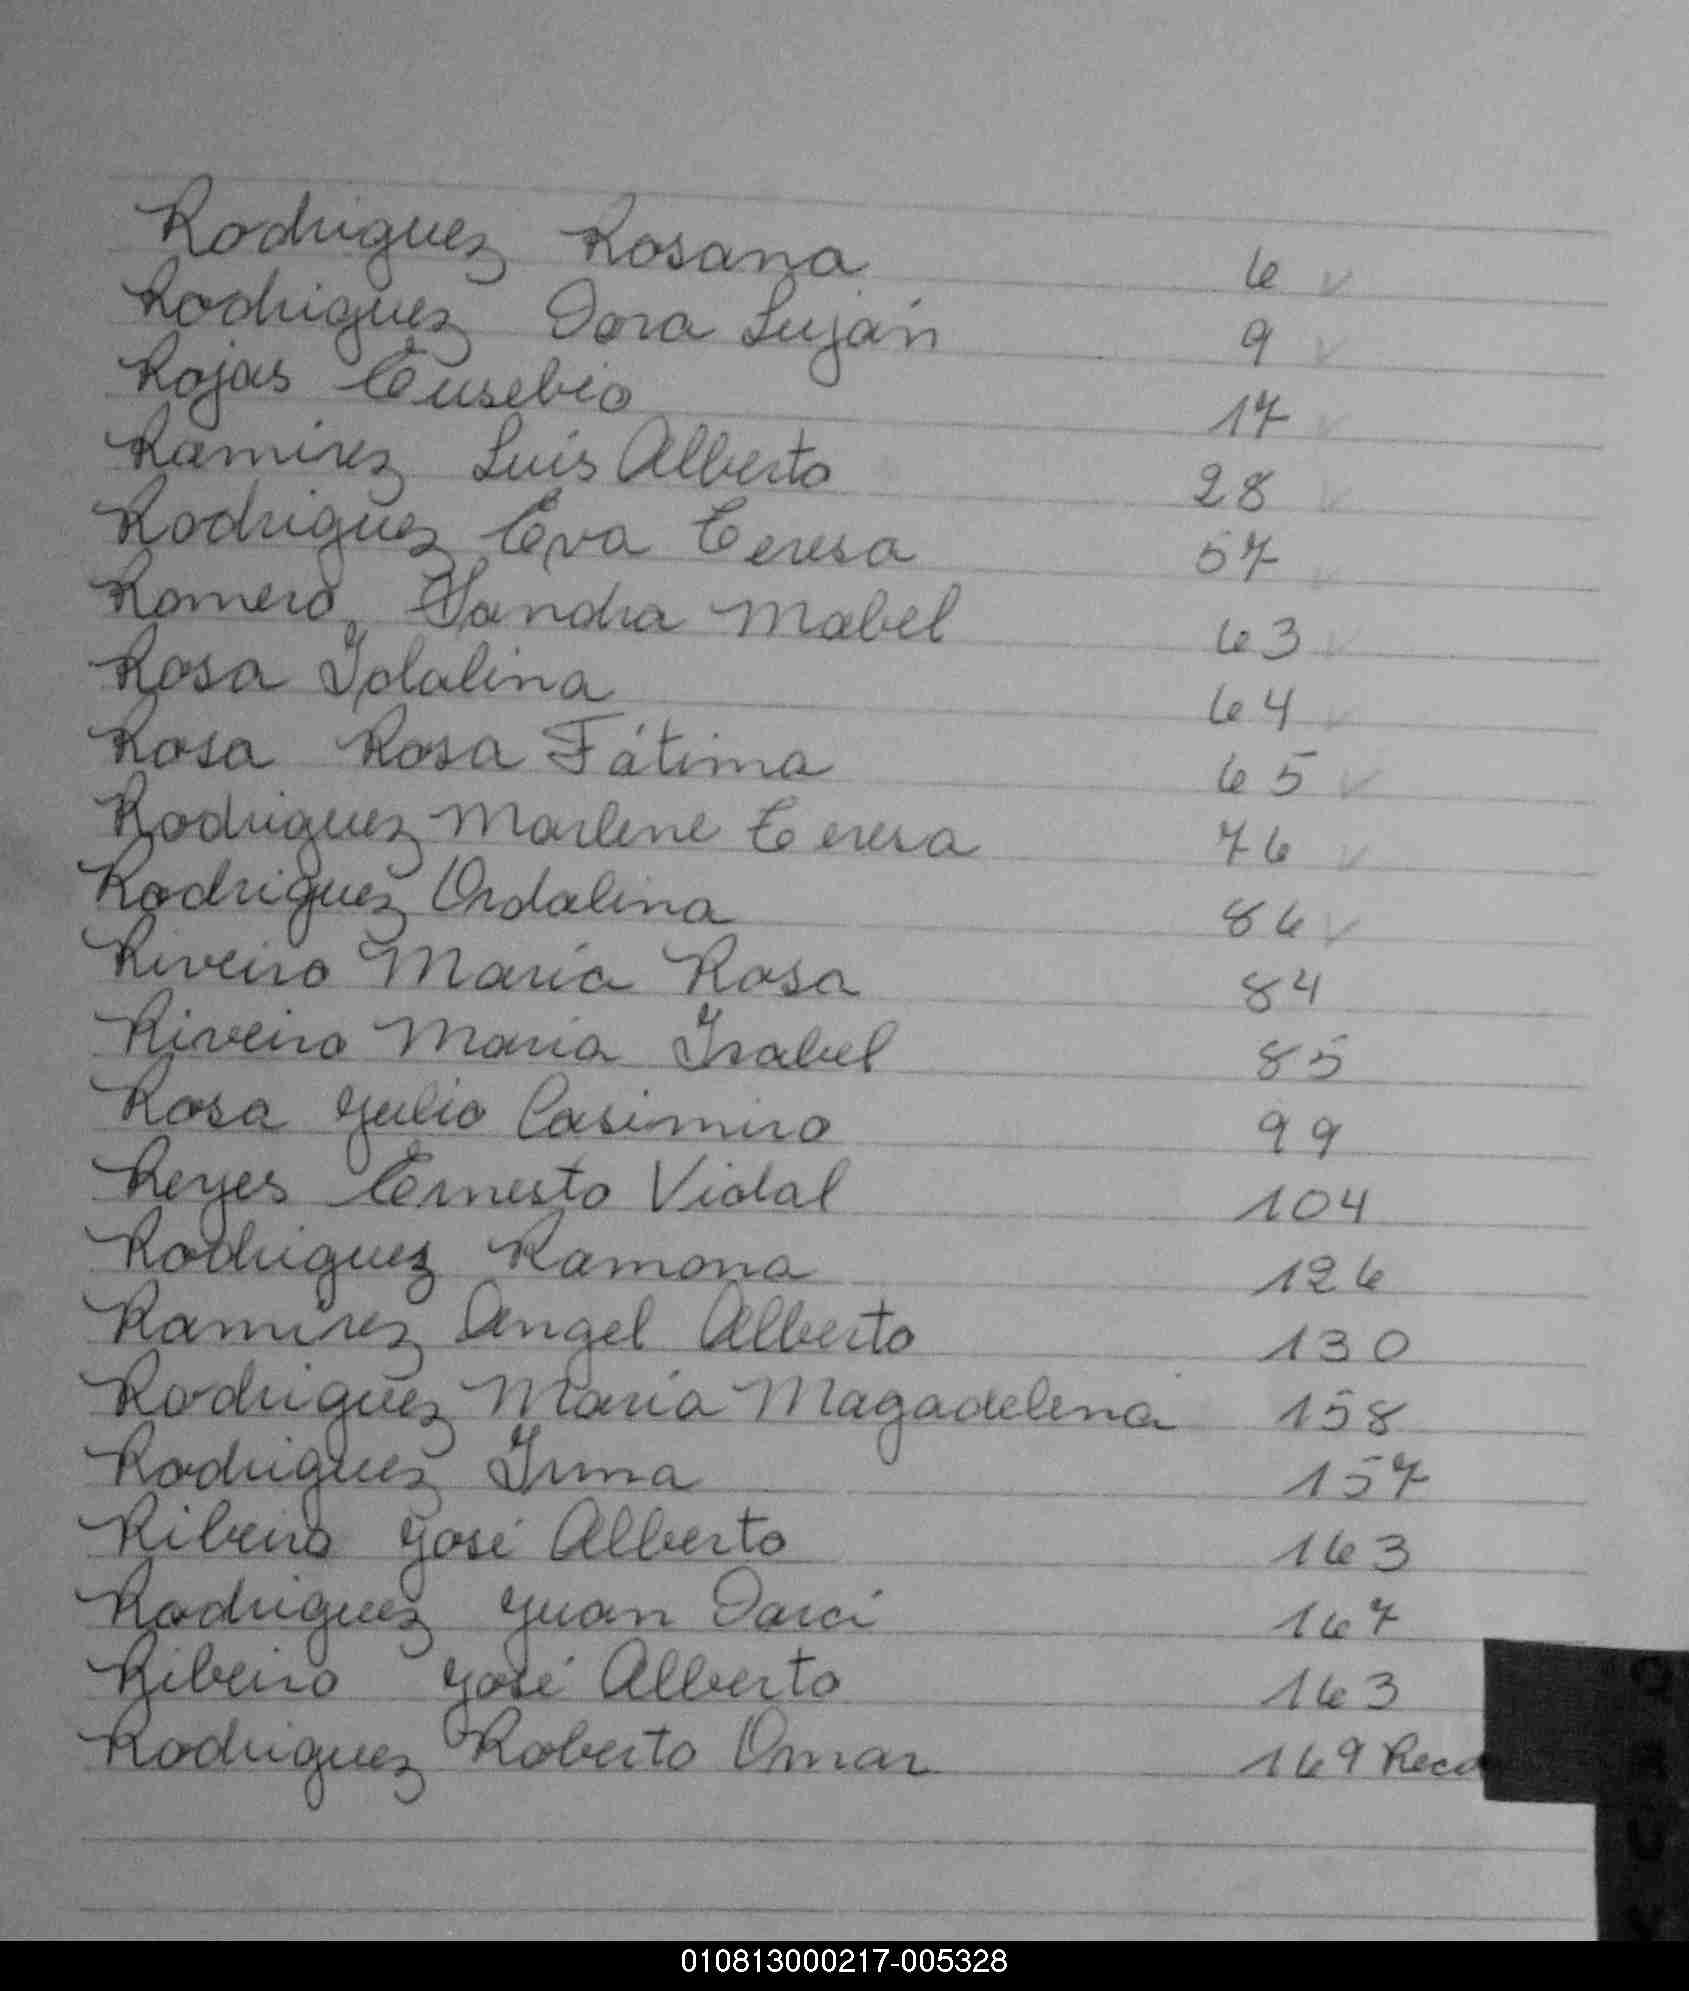 Rodriguez Rosana 6 ✓
Rodriguez Dora Luján 9 ✓
Rojas Eusebio 17 ✓
Ramirez Luis Alberto 28 ✓
Rodriguez Eva Teresa 57 ✓
Romero, Sandra Mabel 63 ✓
Rosa Idalina 64 ✓
Rosa Rosa Fátima 65 ✓
Rodriguez Marlene Teresa 76 ✓
Rodriguez Ordalina 86 ✓
Riveiro María Rosa 84
Riveiro María Isabel 85
Rosa Julio Casimiro 99
Reyes Ernesto Vidal 104
Rodriguez Ramona 126
Ramirez Angel Alberto 130
Rodriguez María Magadelena 158
Rodriguez Irma 157
Ribeiro José Alberto 163
Rodriguez Juan Darci 167
Ribeiro José Alberto 163
Rodriguez Roberto Omar 169
010813000217-005328